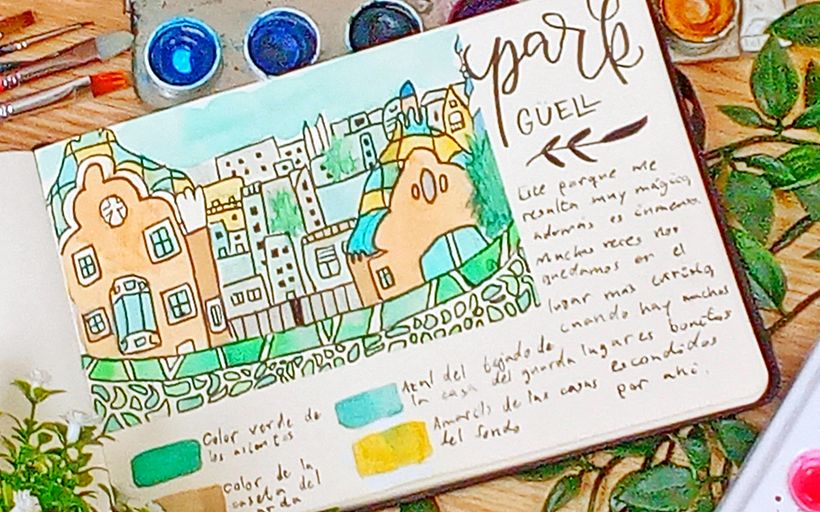 park
GÜELL
Este parque me
resulta muy mágico,
además es inmenso.
Muchas veces nos
quedamos en el
lugar más turístico,
cuando hay muchos
lugares bonitos
escondidos
por ahí.
Color verde de
los asientos
Azul del tejado de
la casa del guarda
Amarillo de las casas
del fondo
color de la
caseta del